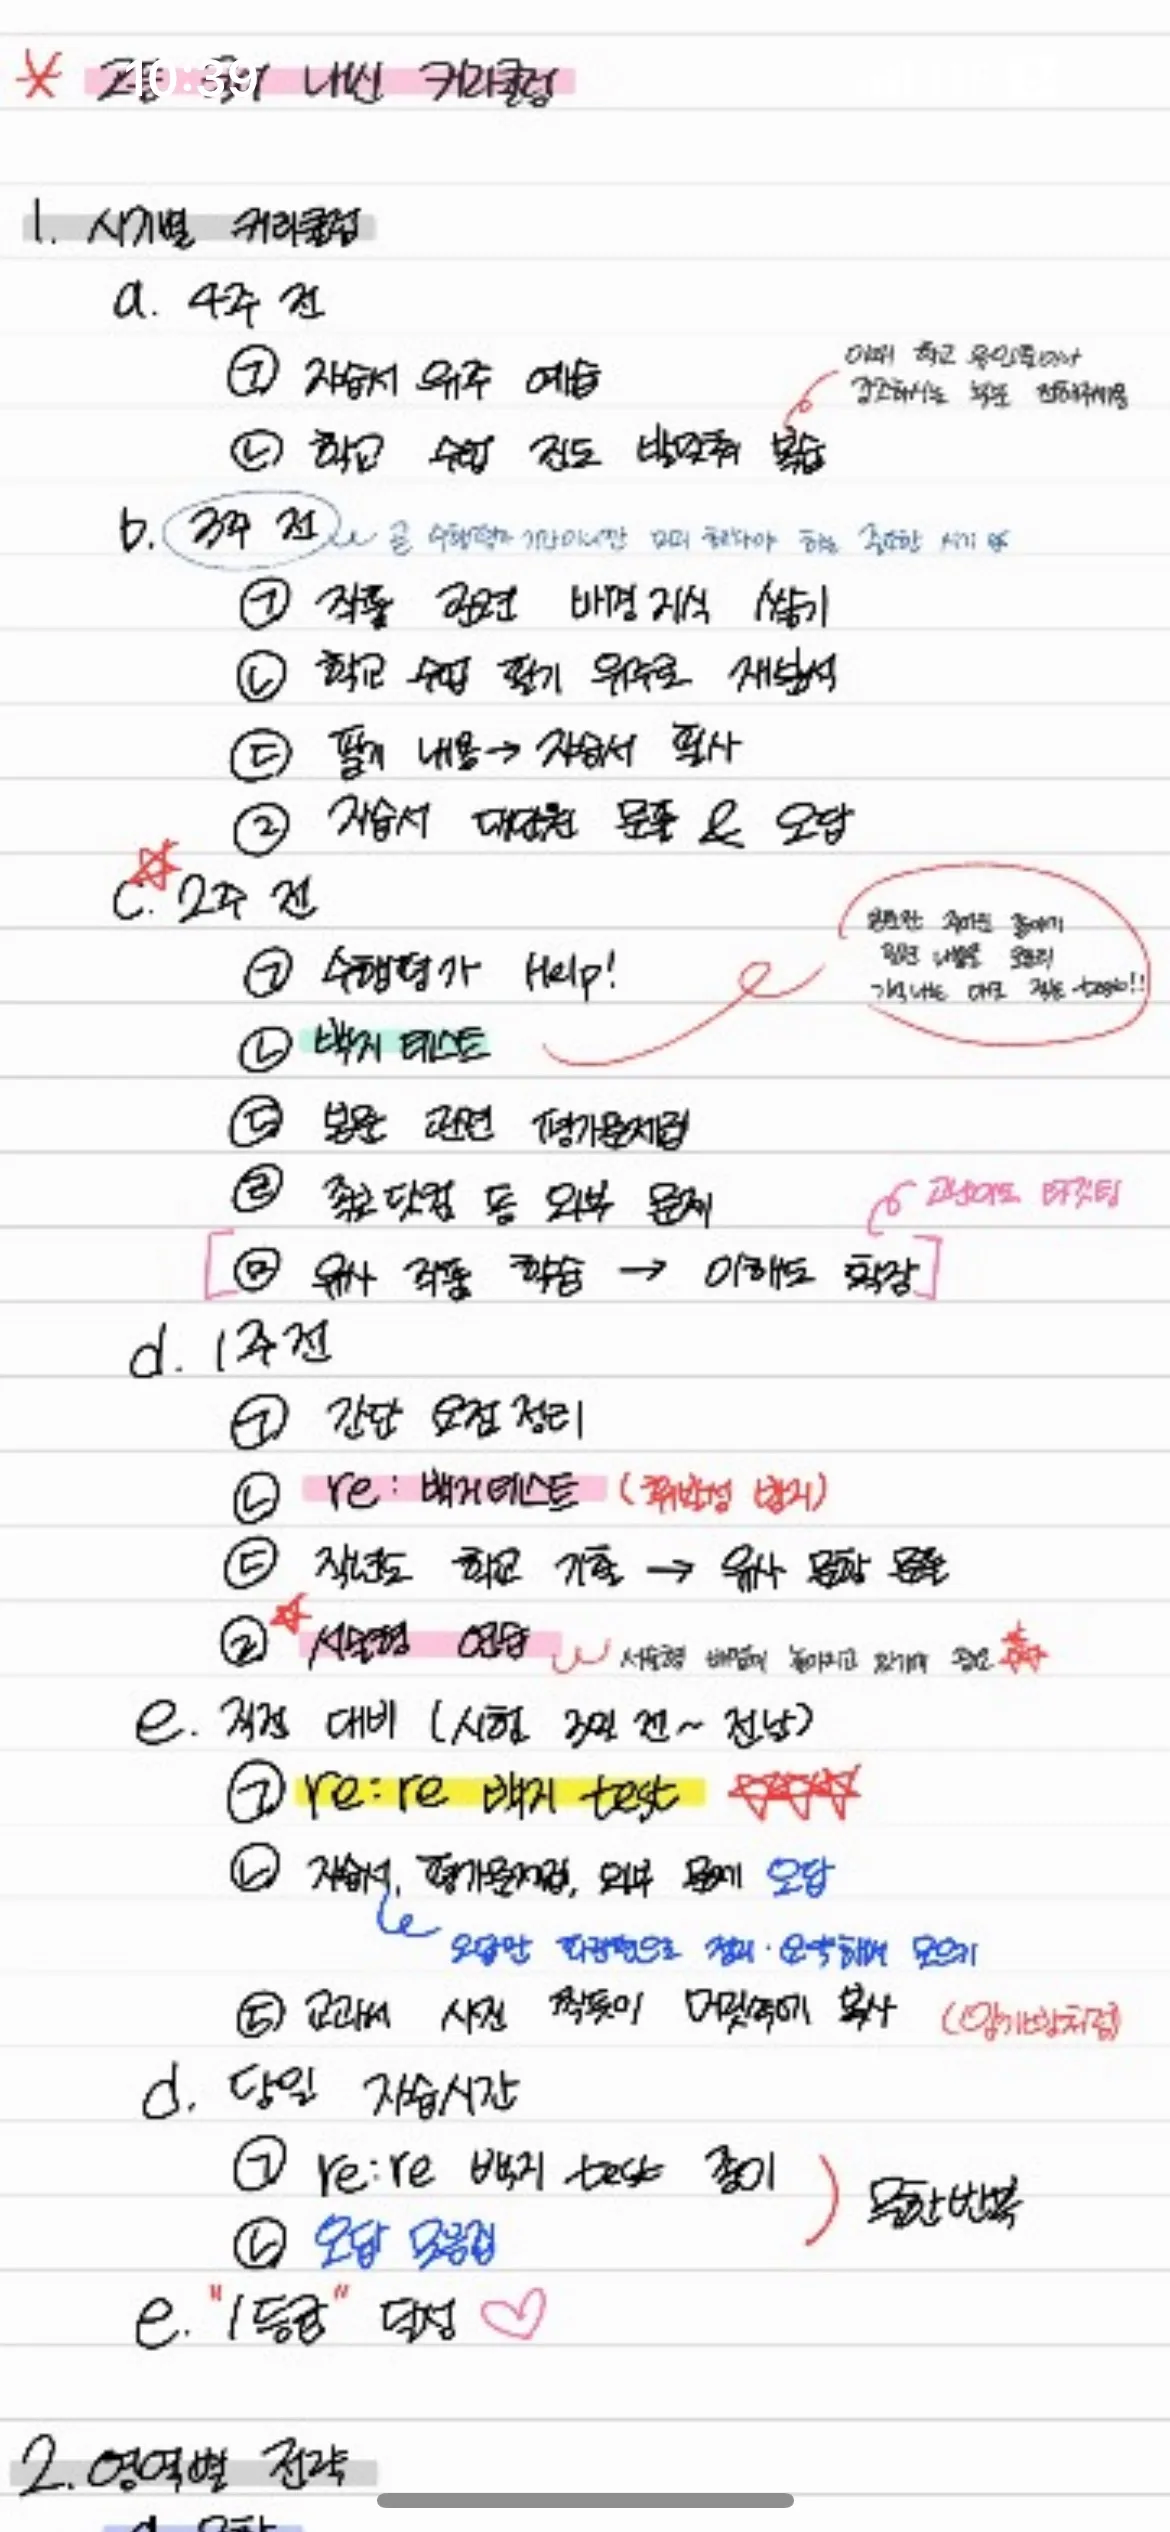 10:39
내신 커리큘럼
1. 시기별 커리큘럼
a. 4주 전
㉠ 자습서 위주 예습
이때 학교
강조하시는
㉡ 학교 수업 진도 발맞춰 복습
b. 3주 전
곧 수행평가 기간이니만 미리 해놔야 하는 중요한 시기
㉠ 작품 관련 배경지식 쌓기
㉡ 학교 수업 필기 위주로 재분석
㉢ 필기 내용 → 자습서 필사
㉣ 자습서 대단원 문풀 & 오답
c. 2주 전
㉠ 수행평가 Help!
본문만 주어진 종이에
필기 내용을 오로지
기억나는 대로 적는 test!!
㉡ 백지 테스트
㉢ 본문 관련 평가문제집
㉣ 족보닷컴 등 외부 문제
고난이도 타깃팅
[㉤ 유사 작품 학습 → 이해도 확장]
d. 1주 전
㉠ 간단 요점정리
㉡ re: 백지테스트 (휘발성 방지)
㉢ 작년도 학교 기출 → 유사 문항 문풀
㉣ 서술형 연습
서술형 배점이 높아지고 있기에 중요
e. 직전 대비 (시험 3일 전~ 전날)
㉠ re:re 백지 test
㉡ 자습서, 평가문제집, 외부 문제 오답
오답만 파란펜으로 정리·요약해서 모으기
㉢ 교과서 사진 찍듯이 머릿속에 복사 (암기빵처럼)
d. 당일 자습시간
㉠ re:re 백지 test 종이
㉡ 오답 모음집
무한반복
e. "1등급" 달성
2. 영역별 전략